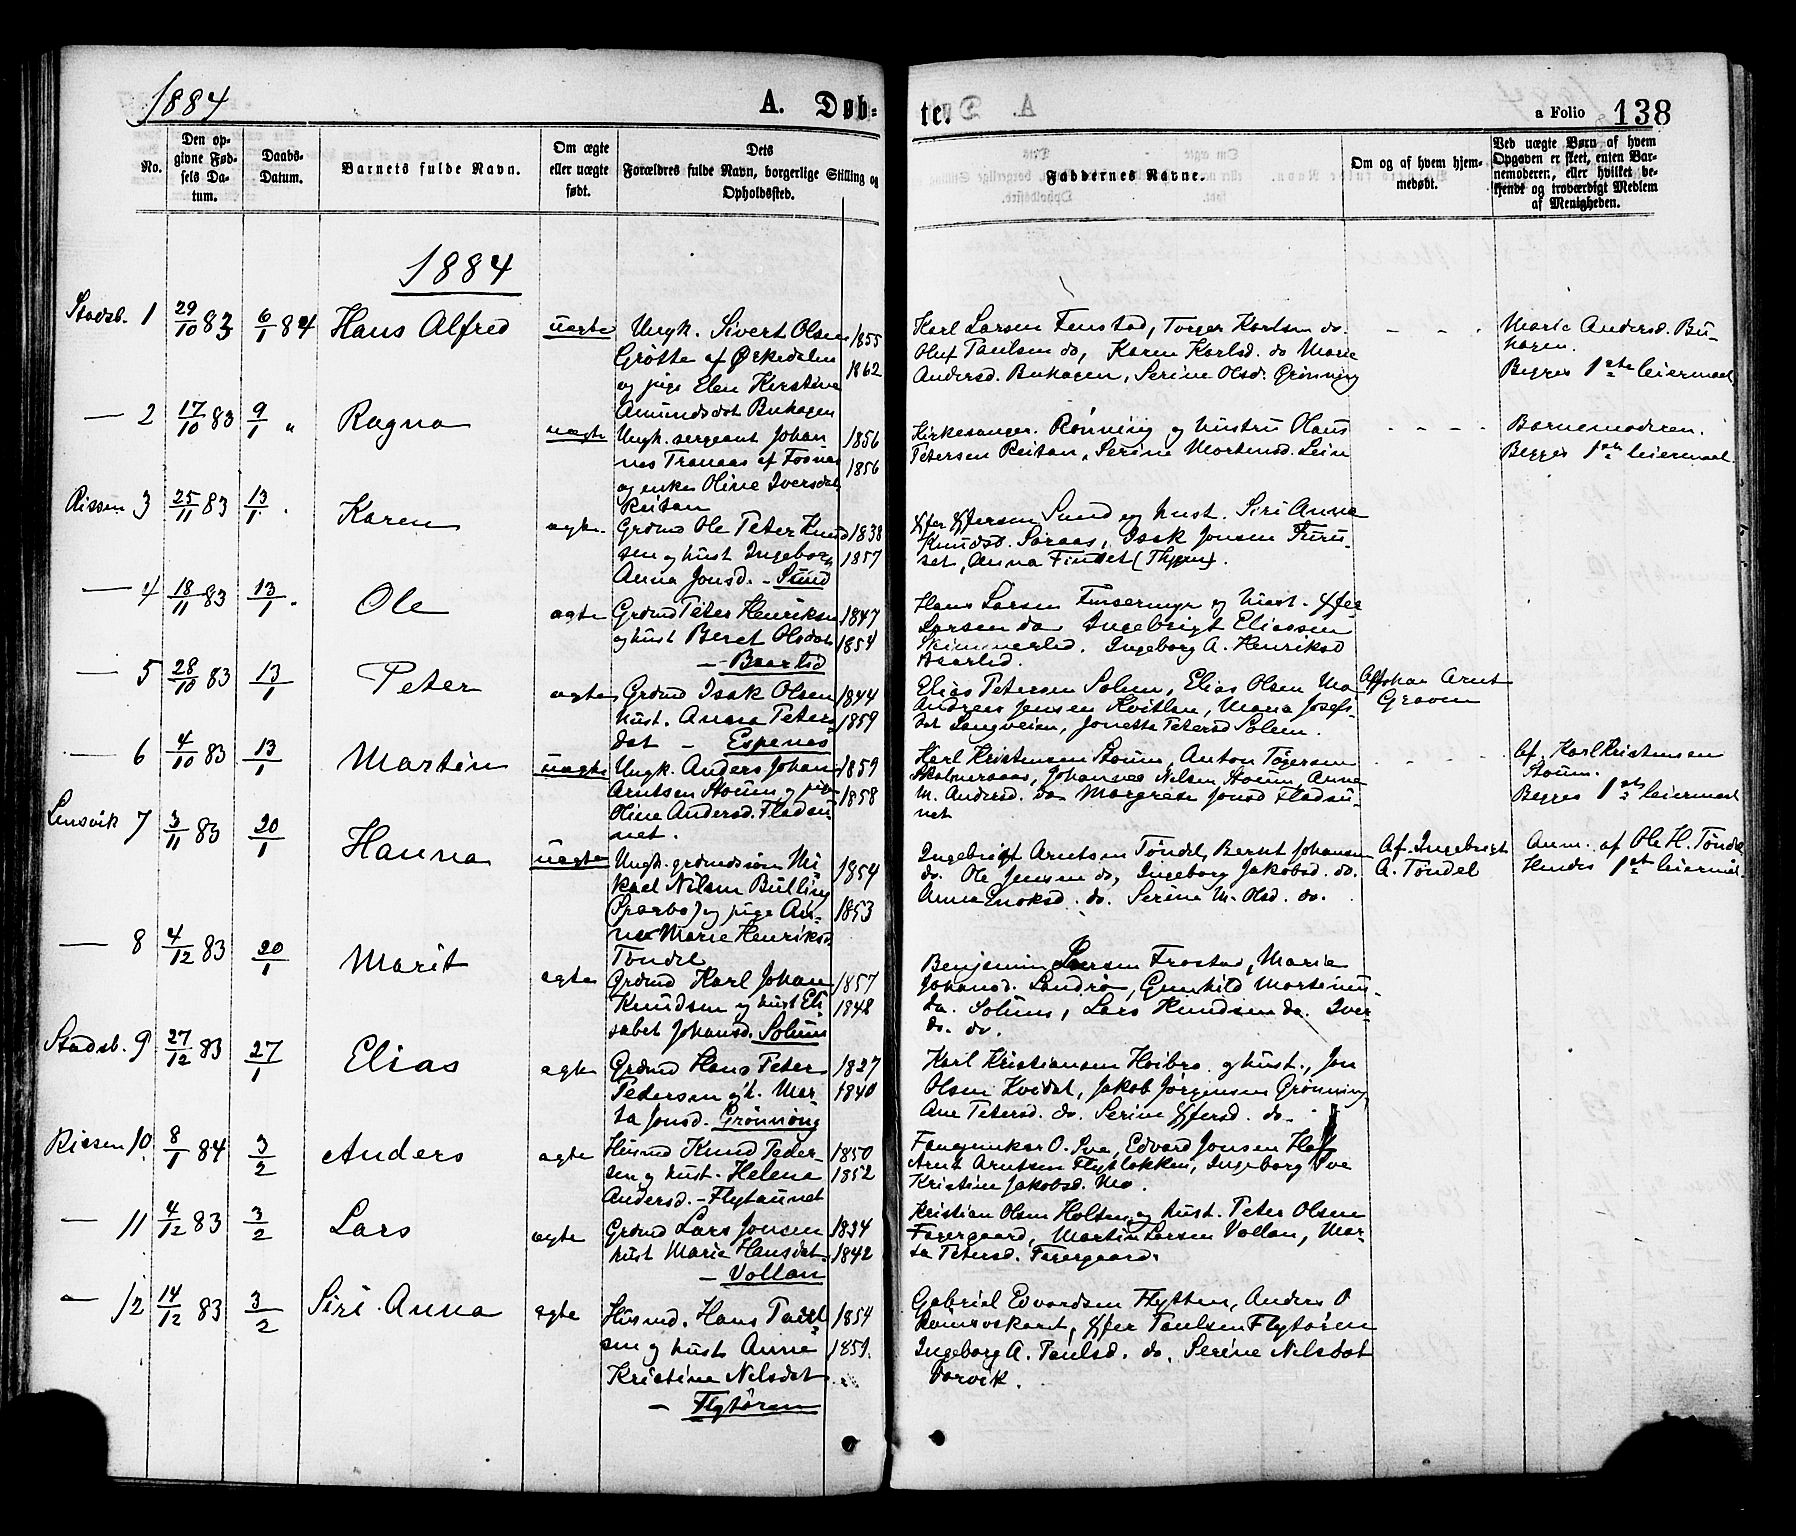 1884
A. Døb-
te.
a Folio 138
No.
Den op-
givne Fød-
sels Da-
tum.
Daabs-
Datum.
Barnets fulde Navn.
Om ægte
eller uægte
født.
Dets
Forældres fulde Navn, borgerlige Stilling og
Opholdssted.
Faddernes Navne.
Om og af hvem hjem-
medøbt.
Ved uægte Børn af hvem
Opgaven er skeet, enten Bar-
nemoderen, eller hvilket be-
kjendt og troværdigt Medlem
af Menigheden.
1884
Stadsb. 1 29/10 83 6/1 84 Hans Alfred uegte
Ungk. Sivert Olsen 1855
Grøtte af Ørkedalen 1862
og pige Elen Kirstine
Amundsdat Buhagen
Karl Larsen Fenstad, Torger Karlsen do.
Oluf Paulsen do, Karen Karlsd. do Marie
Andersd. Buhagen, Serine Olsd. Grønning
- - -
Marie Andersd. Bu-
hagen.
Begges 1ste leiermaal
— 2 17/10 83 9/1 " Ragna uagte
Ungk. sergeant Johan 1856
nes Tranaas af Fosnes 1856
og enke Oline Iversdat
Reitan
Kirkesanger Rønning og hustru Olaus
Petersen Reitan, Serine Mortensd. Lein
- - - -
Barnemoderen.
Begges 1ste leiermaal
Rissen 3 25/11 83 13/1 " Karen agte
Grdmd Ole Peter Knud 1838
sen og hust Ingeborg 1857
Anna Jonsd. - Sund
Iffer Iffersen Sund og hust. Siri Anna
Knudsd. Soraas, Isak Jonsen Furu-
set, Anna Findset
— 4 18/11 83 13/1 " Ole agte
Grdmd Peter Henriksen 1847
og hust Beret Olsdat 1854
Hans Larsen og hust. Iffer
Larsen do Ingebrigt Eliassen
Skimmerlid, Ingeborg A. Henriksd
— 5 28/10 83 13/1 Peter agte
Grdmd Isak Olsen 1844
hust. Anna Peters 1859
dat - Espenes
Elias Petersen Solem, Elias Olsen Mo
Andreas Jensen Kvitlan, Maria Josefs-
dat Langveien, Jonetta Petersd Solem.
Af Johan Arnt
Graven
— 6 4/10 83 13/1 Martin uagte
Ungk. Anders Johan 1859
Arntsen Stoum og pige 1858
Oline Andersd. Fladsu
net.
Karl Kristensen Stoum, Anton Tøgersen
Skolmeraas, Johannes Nilsen Stoum, Anne
M. Andersd. do Margrete Jonsd Fladsu-
net
- - - - -
Af. Karl Kristensen
Stoum.
Begges 1ste leiermaal
Lensvik 7 3/11 83 20/1 Hanna uagte
Ungk. grdmdssøn Mi- 1854
kael Nilsen Bulling
(Sparbo) og pige An- 1853
ne Marie Henriksd
Tøndel
Ingebrigt Arntsen Tøndel, Bernt Johansen
do. Ole Jensen do, Ingeborg Jakobsd. do.
Anna Enoksd. do. Serine M. Olsd. do.
Af. Ingebrigt
A. Tøndel
Anm. af Ole H. Tøndel
Hendes 1ste leiermaal
— 8 4/12 83 20/1 Marit agte
Grdmd Karl Johan 1857
Knudsen og hust Eli- 1848
sabet Johansd. Solum
Benjamin Larsen Frostad, Marie
Johansd. Landrø, Gunhild Mortens-
da. Solum, Lars Knudsen do. Iver
do. do.
Stadsb. 9 27/12 83 27/1 Elias agte
Grdmd Hans Peter 1827
Pedersen og h. Mar- 1840
ta Jonsd. Grønning
Karl Kristiansen Høibro og hust., Jon
Olsen Kvidal, Jakob Jørgensen Grønning,
Ane Petersd. do. Serine Iffersd. do.
Rissen 10 8/1 84 3/2 Anders agte
Husmd Knud Peder- 1850
sen og hust. Helena 1852
Andersd. - Flytaunet
Fanejunker O. Sve, Edvard Jonsen Hof
Arnt Arntsen Flytløkken, Ingeborg Sve
Kristine Jakobsd. Mo.
— 11 4/12 83 3/2 Lars agte
Grdmd Lars Jonsen 1834
hust Marie Hansdat 1842
— Vollan
Kristian Olsen Holten og hust. Peter Olsen
Farergaard, Martin Larsen Vollan, Mar-
ta Petersd. Farergaard.
— 12 14/12 83 3/2 Siri Anna agte
Husmd. Hans Paul- 1854
sen og hust Anne 1859.
Kristine Nilsdat
— Flytøren
Gabriel Edvardsen Flytten, Anders O
Ramsvskaret, Iffer Paulsen Flytøren
Ingeborg A. Paulsd. do, Serine Nilsdat
Varvik.